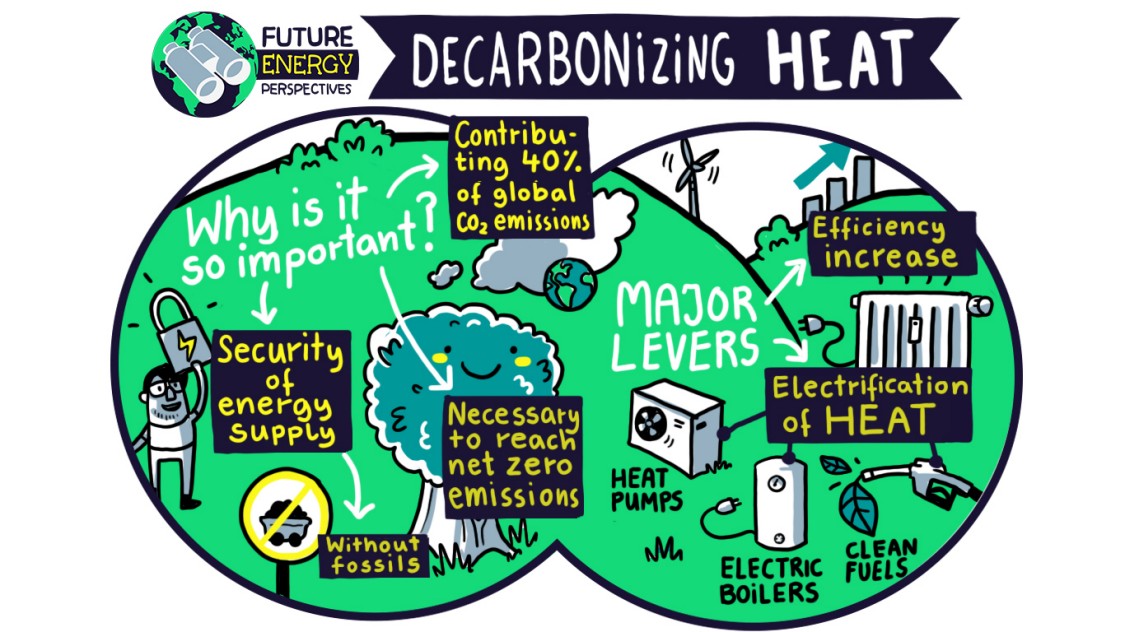 FUTURE
ENERGY
PERSPECTIVES
DECARBONiZiNG HEAT
Why is it
so important?
Contribu-
ting 40%
of global
CO₂ emissions
Security
of
energy
supply
Without
fossils
Necessary
to reach
net zero
emissions
MAJOR
LEVERS
Efficiency
increase
Electrification
of HEAT
HEAT
PUMPS
ELECTRIC
BOiLERS
CLEAN
FUELS